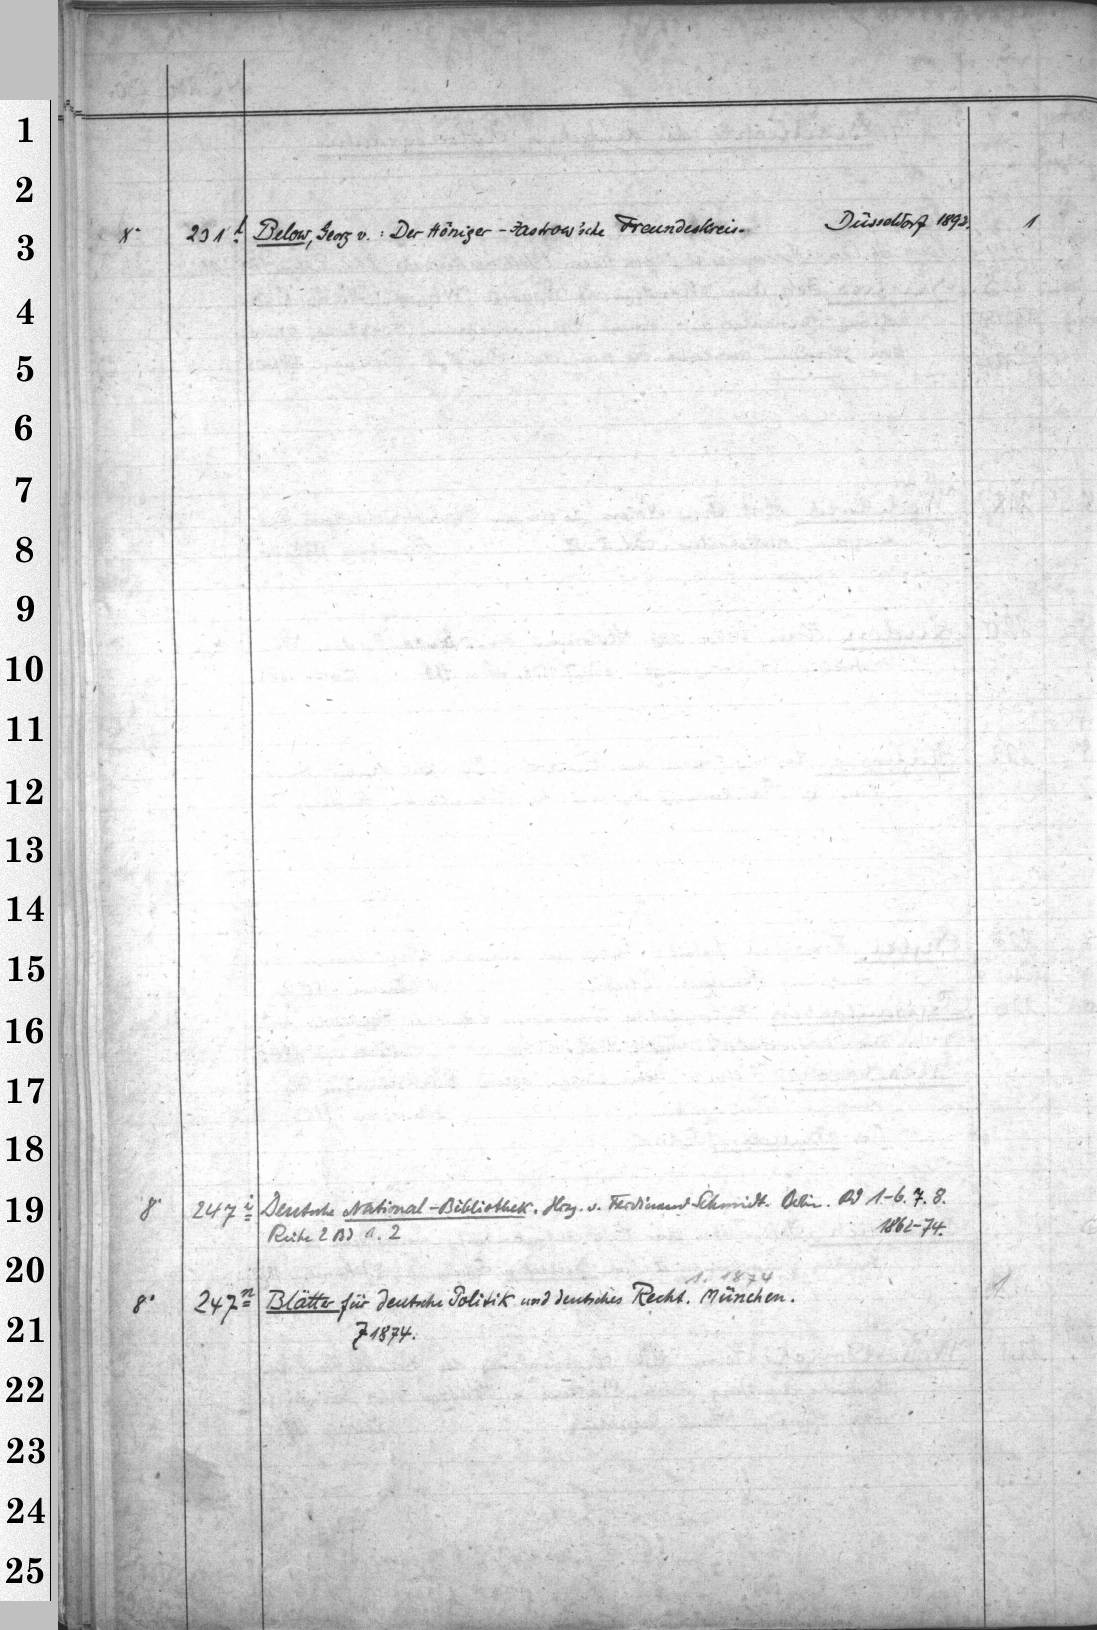 1
2
8° 231 Below, Georg v.: Der Höniger-Jastrow'sche Freundeskreis. Düsseldorf 1892. 1
3
4
5
6
7
8
9
10
11
12
13
14
15
16
17
18
8° 247 i Deutsche National-Bibliothek. Hrsg. v. Ferdinand Schmidt. Berlin. Bd 1-6. 7. 8.
19
Reihe 2 Bd 1. 2 1862-74.
20
1. 1874
8° 247 n Blätter für deutsche Politik und deutsches Recht. München. 1
21
1874.
22
23
24
25